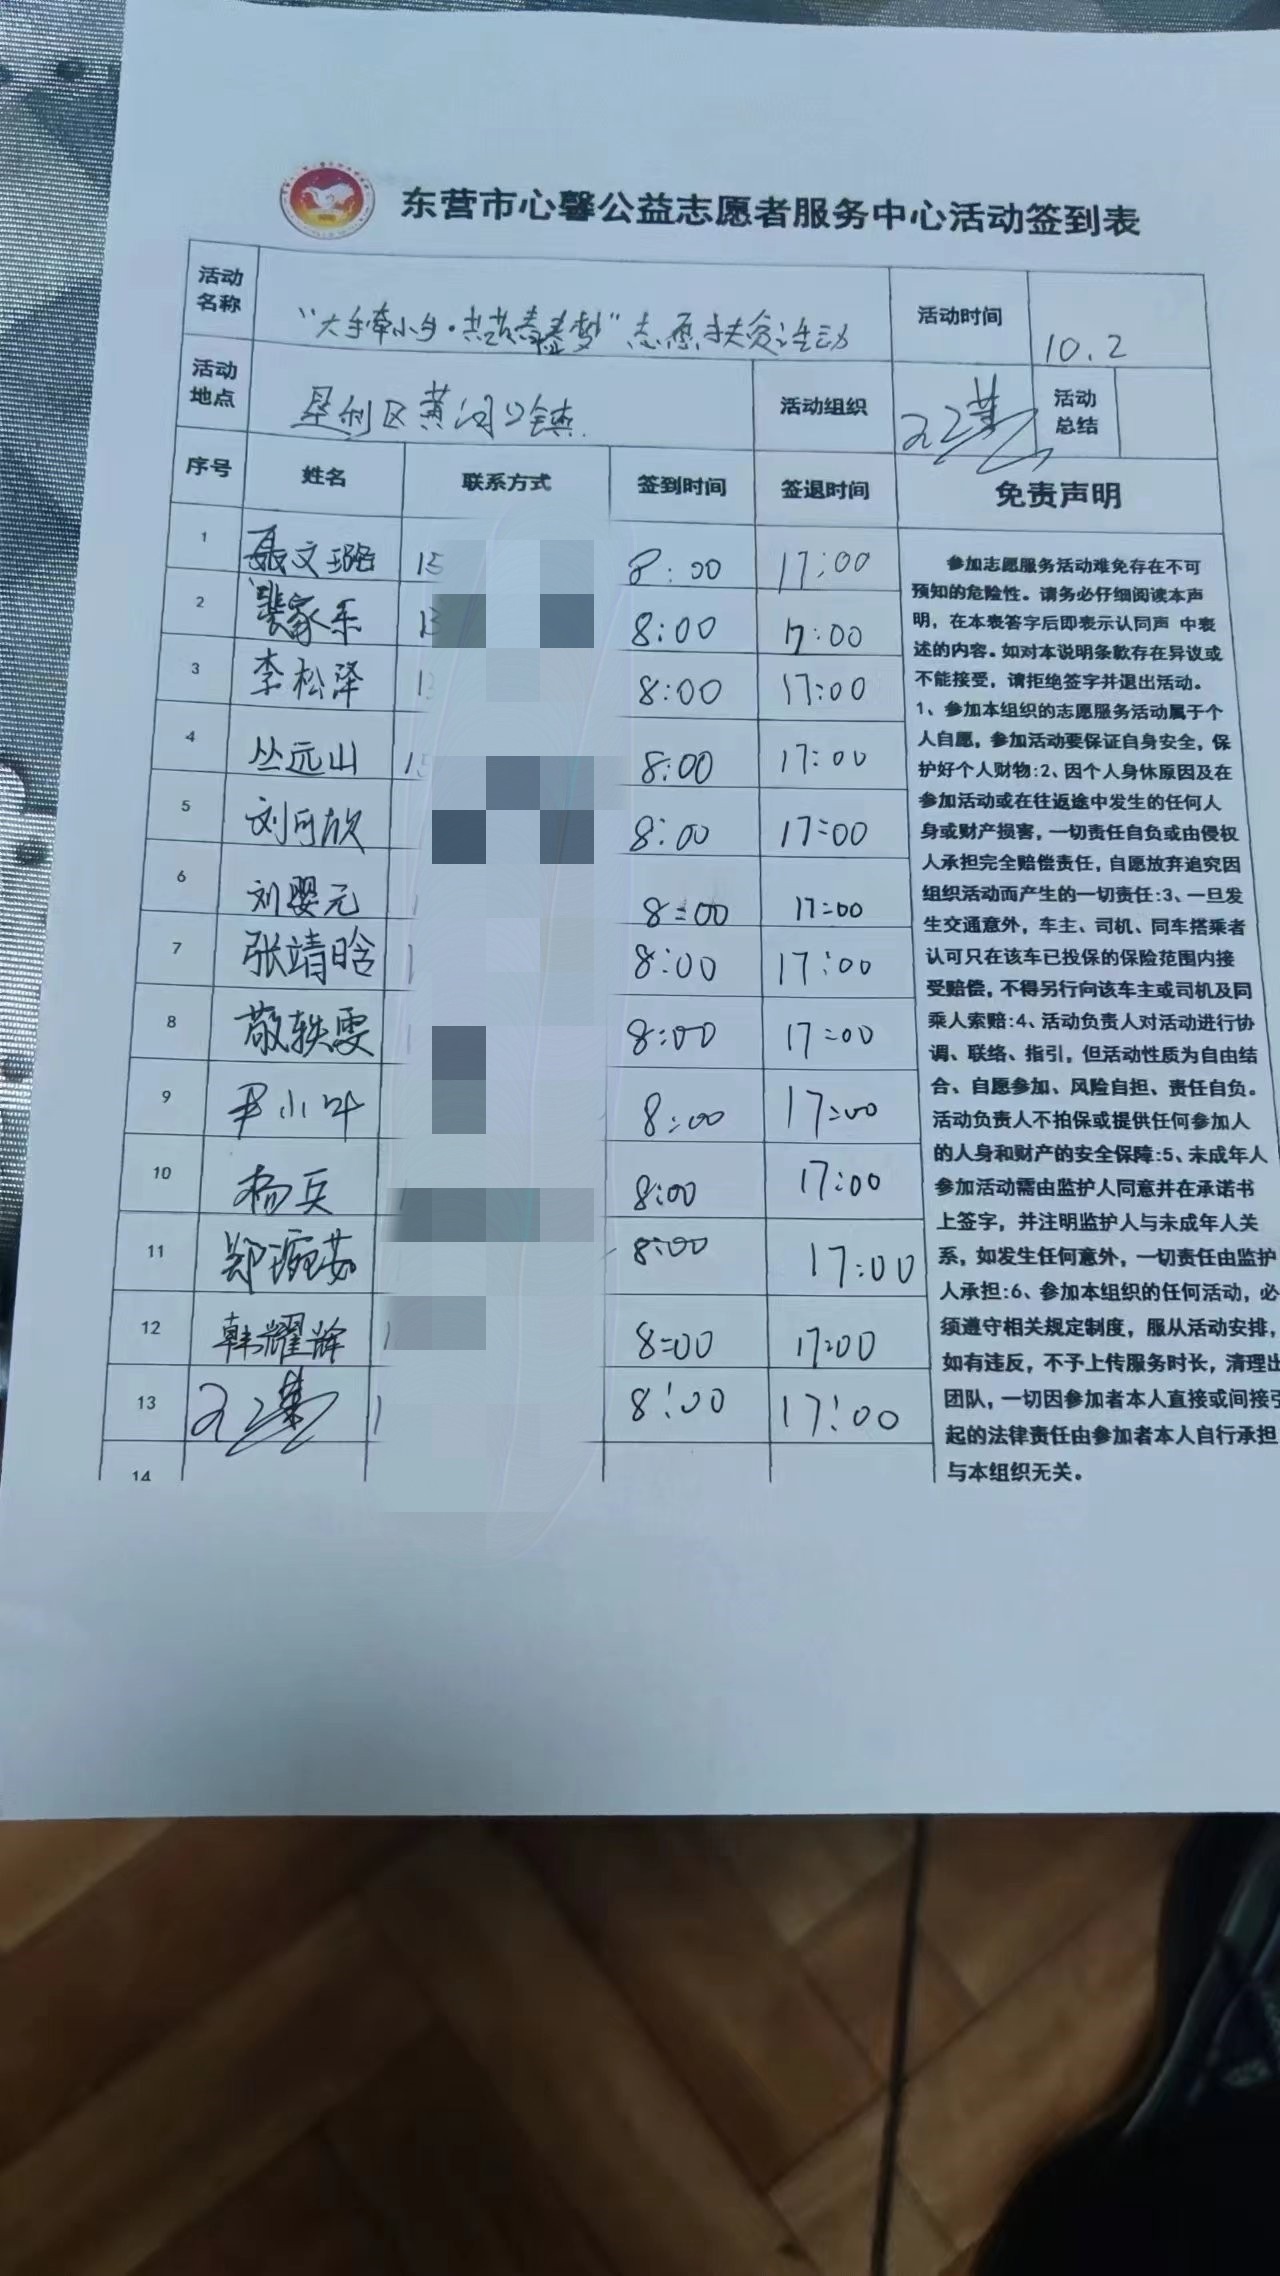 东营市心馨公益志愿者服务中心活动签到表
活动名称 "大手牵小手·共筑青春梦"志愿扶贫活动 活动时间 10.2
活动地点 垦利区黄河口镇 活动组织 活动总结
序号 姓名 联系方式 签到时间 签退时间 免责声明
1 聂文璐 15 8:00 17:00
2 裴家乐 13 8:00 17:00
3 李松泽 13 8:00 17:00
4 丛远山 15 8:00 17:00
5 刘可欣 8:00 17:00
6 刘婴元 1 8:00 17:00
7 张靖晗 1 8:00 17:00
8 敬轶雯 1 8:00 17:00
9 尹小叶 8:00 17:00
10 杨兵 8:00 17:00
11 郑琬茹 8:00 17:00
12 韩耀辉 1 8:00 17:00
13 1 8:00 17:00
14
参加志愿服务活动难免存在不可
预知的危险性。请务必仔细阅读本声
明，在本表答字后即表示认同声 中表
述的内容。如对本说明条款存在异议或
不能接受，请拒绝签字并退出活动。
1、参加本组织的志愿服务活动属于个
人自愿，参加活动要保证自身安全，保
护好个人财物:2、因个人身休原因及在
参加活动或在往返途中发生的任何人
身或财产损害，一切责任自负或由侵权
人承担完全赔偿责任，自愿放弃追究因
组织活动而产生的一切责任:3、一旦发
生交通意外，车主、司机、同车搭乘者
认可只在该车已投保的保险范围内接
受赔偿，不得另行向该车主或司机及同
乘人索赔:4、活动负责人对活动进行协
调、联络、指引，但活动性质为自由结
合、自愿参加、风险自担、责任自负。
活动负责人不拍保或提供任何参加人
的人身和财产的安全保障:5、未成年人
参加活动需由监护人同意并在承诺书
上签字，并注明监护人与未成年人关
系，如发生任何意外，一切责任由监护
人承担:6、参加本组织的任何活动，必
须遵守相关规定制度，服从活动安排，
如有违反，不予上传服务时长，清理出
团队，一切因参加者本人直接或间接引
起的法律责任由参加者本人自行承担
与本组织无关。